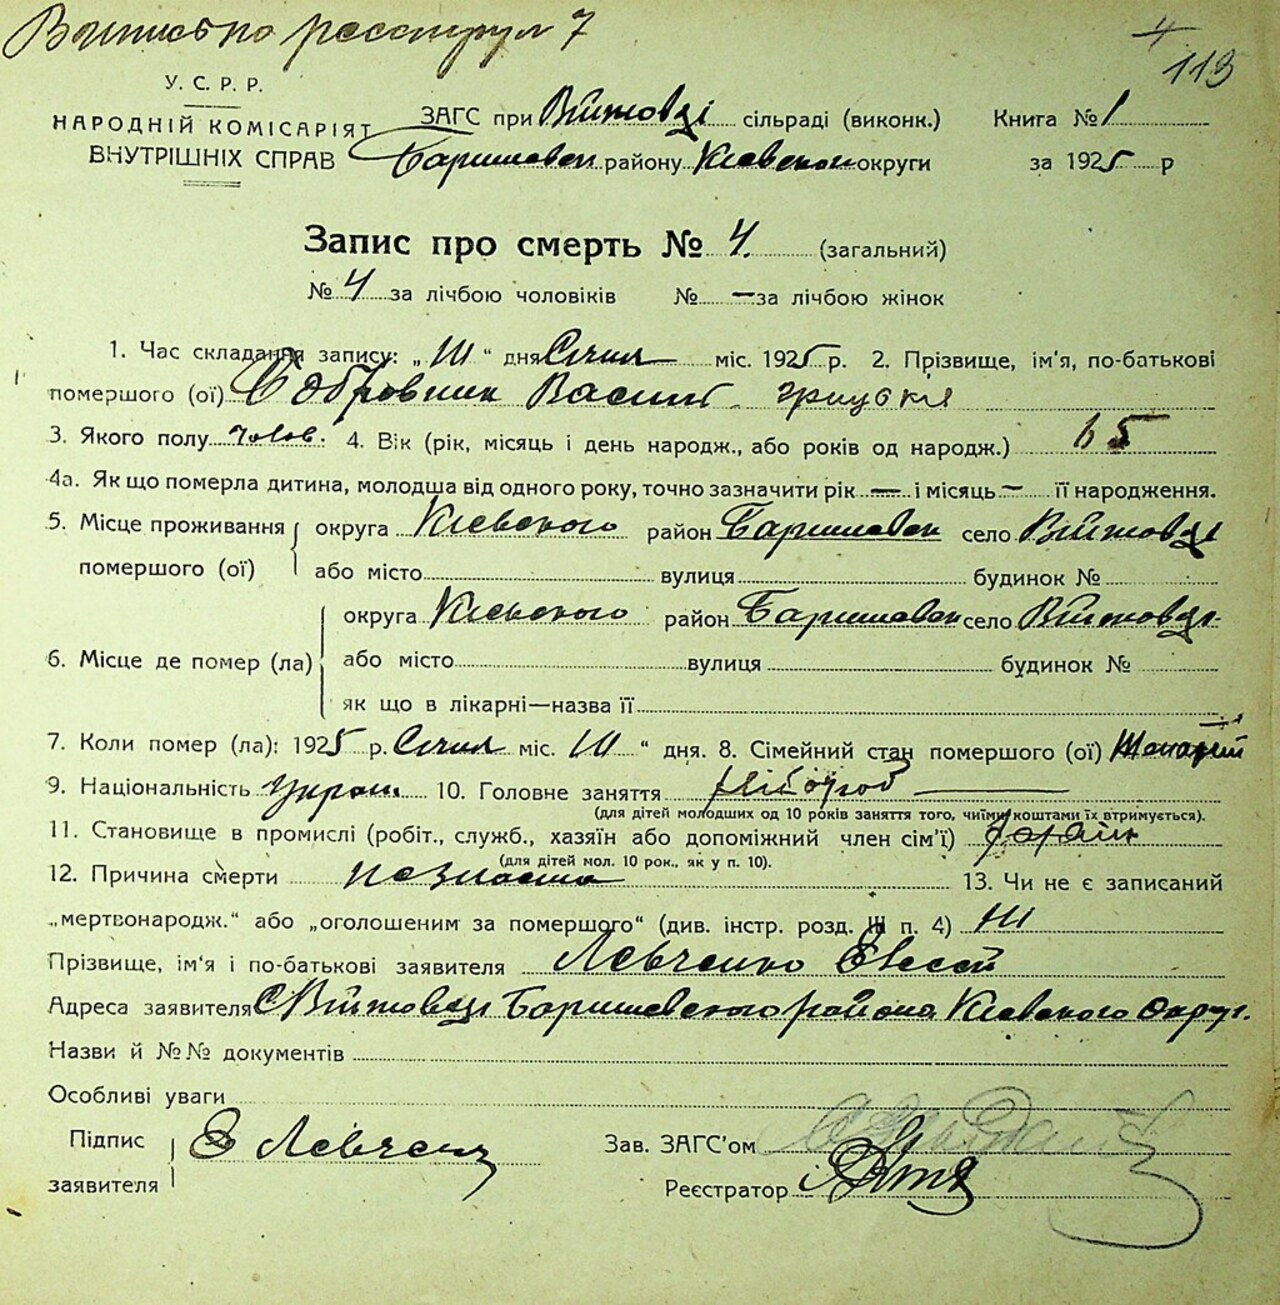 4
113
У. С. Р. Р.
НАРОДНІЙ КОМІСАРІЯТ
ВНУТРІШНІХ СПРАВ
ЗАГС при Війтовці сільраді (виконк.) Книга № 1
Баришевск. району Киевской округи за 1925 р
Запис про смерть № 4. (загальний)
№ 4 за лічбою чоловіків № — за лічбою жінок
1. Час складання запису: „ “ дня Січня міс. 1925 р. 2. Прізвище, ім'я, по-батькові
помершого (ої) Василь
3. Якого полу чолов. 4. Вік (рік, місяць і день народж., або років од народж.) 65
4а. Як що померла дитина, молодша від одного року, точно зазначити рік — і місяць — її народження.
5. Місце проживання помершого (ої) округа Киевского район Баришевск село Війтовці
або місто вулиця будинок №
6. Місце де помер (ла) округа Киевского район Баришевск село Війтовці
або місто вулиця будинок №
як що в лікарні—назва її
7. Коли помер (ла): 1925 р. Січня міс. “ дня. 8. Сімейний стан помершого (ої)
9. Національність Украин. 10. Головне заняття Хлібороб
(для дітей молодших од 10 років заняття того, чиїми коштами їх втримується).
11. Становище в промислі (робіт., служб., хазяїн або допоміжний член сім'ї)
(для дітей мол. 10 рок., як у п. 10).
12. Причина смерти 13. Чи не є записаний
„мертвонародж.“ або „оголошеним за помершого“ (див. інстр. розд. III п. 4) Ні
Прізвище, ім'я і по-батькові заявителя Левченко
Адреса заявителя С Війтовці Баришевского района Киевского Округ.
Назви й №№ документів
Особливі уваги
Підпис заявителя
Зав. ЗАГС'ом
Реєстратор